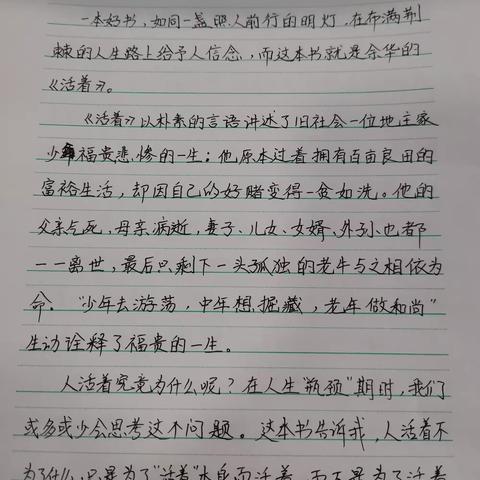 一本好书，如同一盏照人前行的明灯，在布满荆
棘的人生路上给予人信念，而这本书就是余华的
《活着》。
《活着》以朴素的言语讲述了旧社会一位地主家
少爷福贵悲惨的一生；他原本过着拥有百亩良田的
富裕生活，却因自己的好赌变得一贫如洗。他的
父亲气死，母亲病逝，妻子、儿女、女婿、外孙也都
一一离世，最后只剩下一头孤独的老牛与之相依为
命。"少年去游荡，中年想掘藏，老年做和尚"
生动诠释了福贵的一生。
人活着究竟为什么呢？在人生"瓶颈"期时，我们
或多或少会思考这个问题。这本书告诉我，人活着不
为了什么，只是为了"活着"本身而活着，而不是为了活着